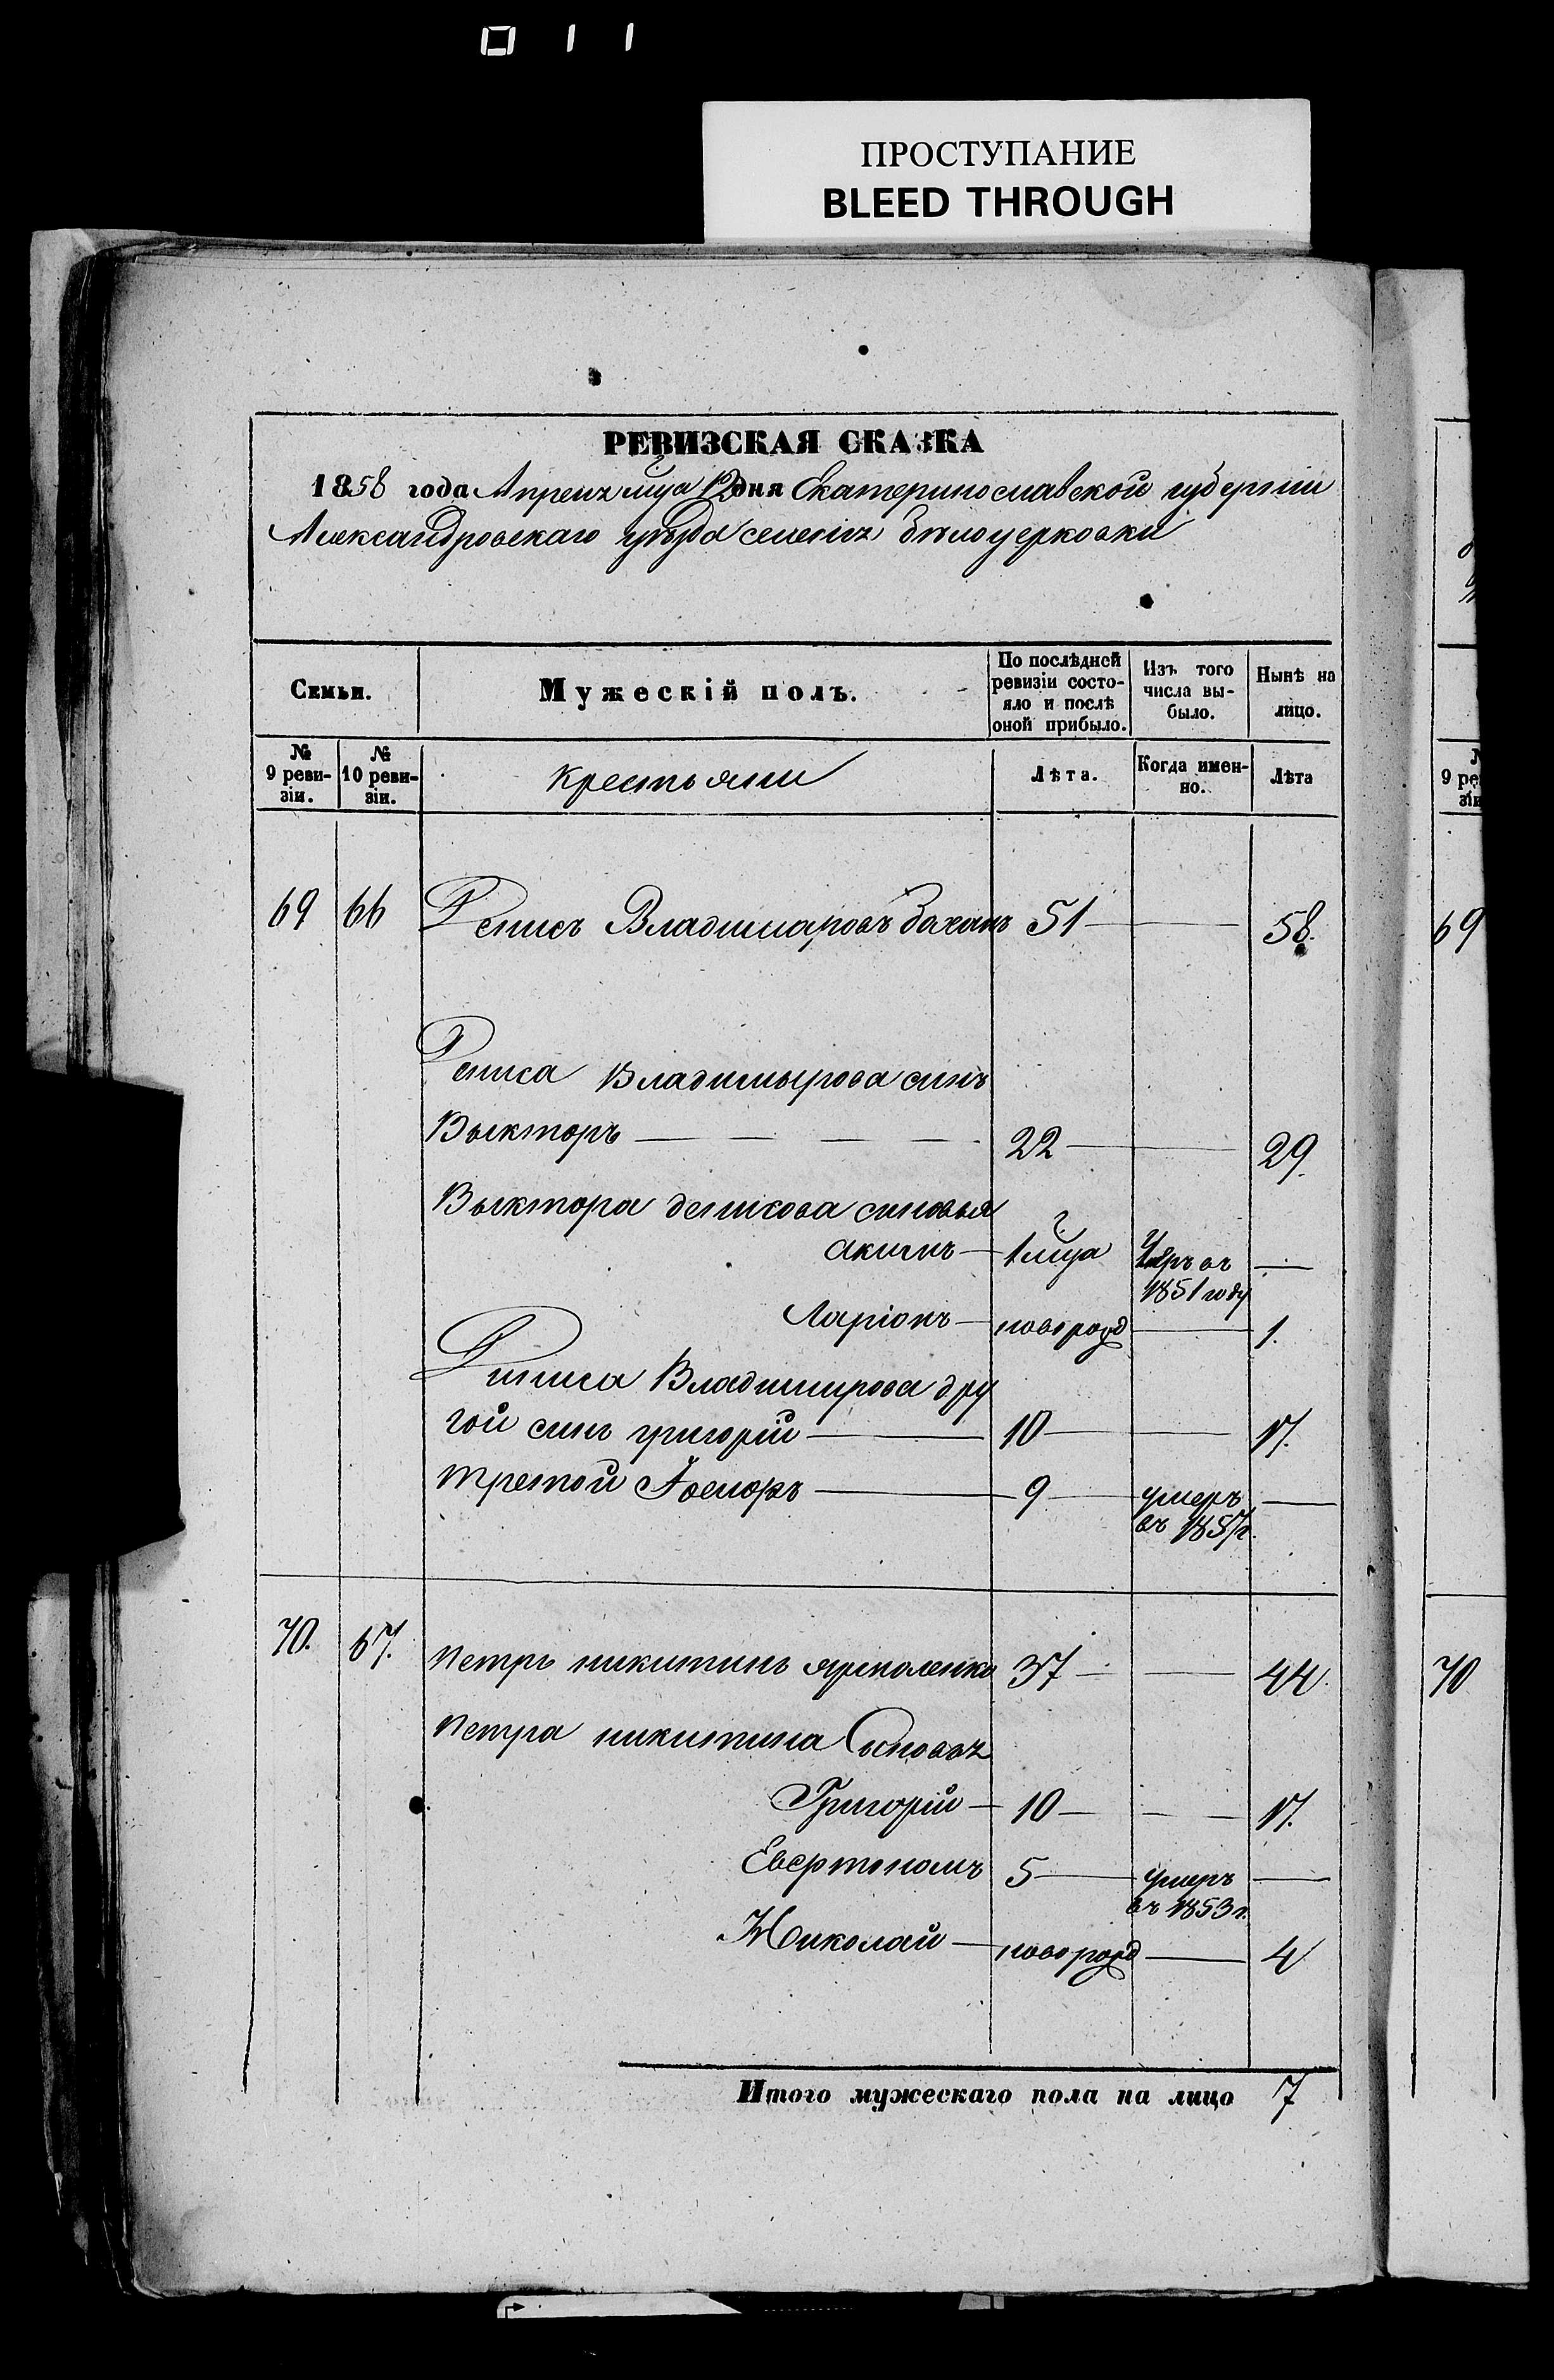 ПРОСТУПАНИЕ
BLEED THROUGH
РЕВИЗСКАЯ СКАЗКА
1858 года Апреля мца 12 дня Екатеринославской губерніи
Александровскаго уѣзда селенія бѣлоцерковки
Семьи.
Мужескій полъ.
По послѣдней ревизіи состояло и послѣ оной прибыло.
Изъ того числа выбыло.
Нынѣ на лицо.
№ 9 ревизіи.
№ 10 ревизіи.
крестьяни
Лѣта.
Когда именно.
Лѣта
69 66 Денисъ Владимаровъ 51 — 58.
Дениса Владимырова синъ
Выкторъ — 22 — 29.
Выктора денисова синовья
акимъ — 1 мца 1851 году —
Ларіонъ — новорозд — 1.
Дениса Владимирова дру
гой синъ григорій — 10 — 17.
третой — 9 — умеръ въ 1857 г. —
70. 67. петръ никитинъ ярмоленко 37 — 44.
петра никитина Сыновъя
Григорій — 10 — 17.
5 — умеръ въ 1853 г. —
Николай — новорозд — 4
Итого мужескаго пола на лицо 7
69
70